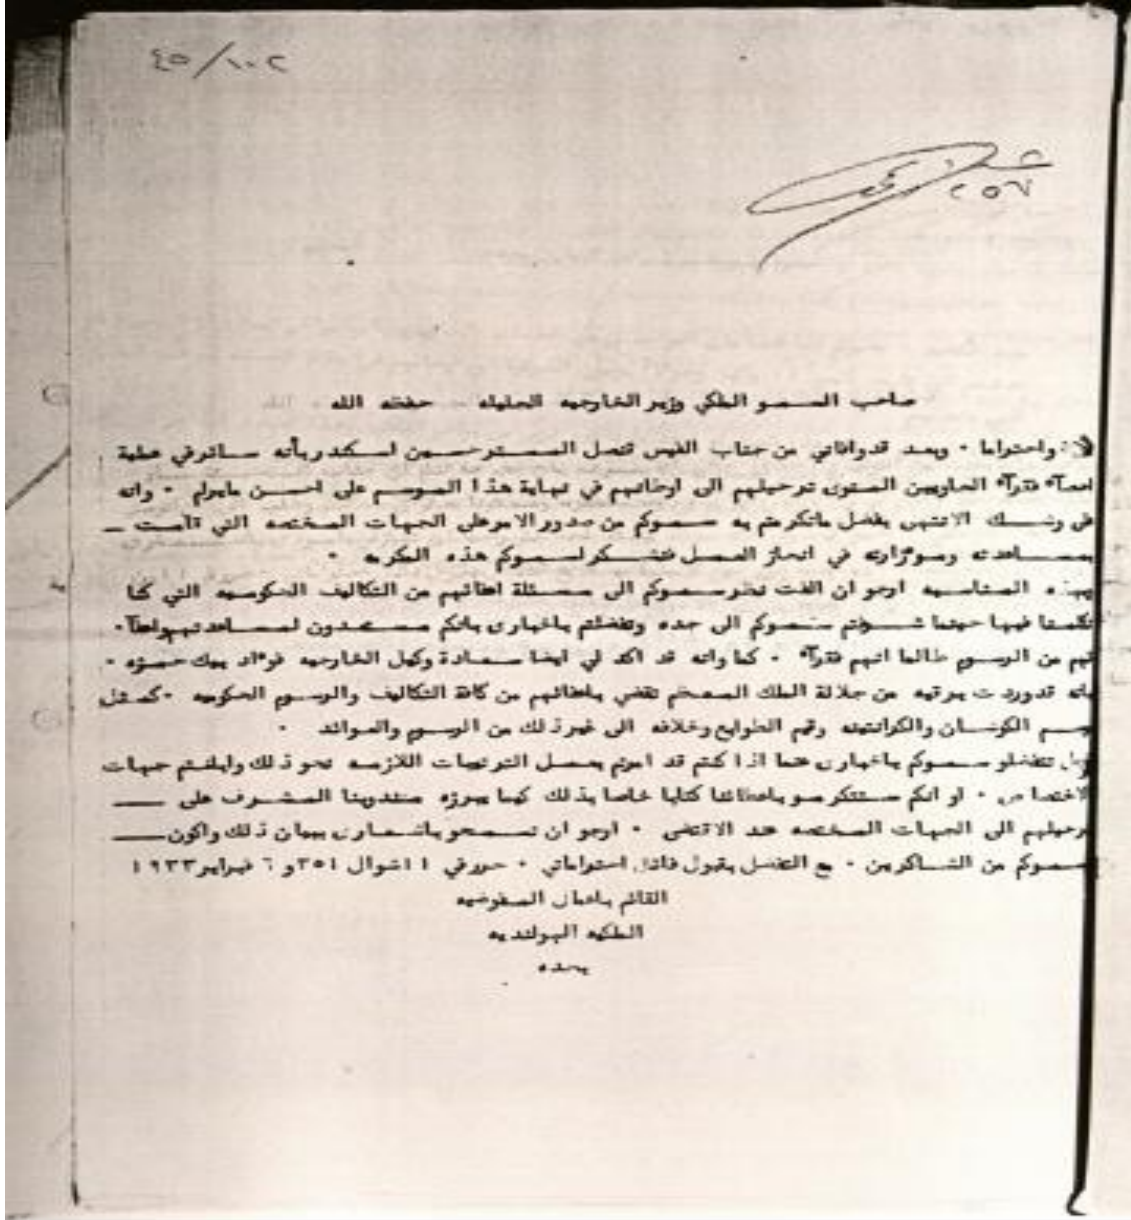 ٤٥/١٠٢
٢٥٧
صاحب السمو الملكي وزير الخارجيه الجليله حفظه الله
واحتراما ٠ وبعد قد وافاتي من جناب الفيس قنصل المستر حسين اسكندر بأنه سائر في عملية
احصآء فقرآء الجاويين المنوى ترحيلهم الى اوطانهم في نهاية هذا الموسم على احسن مايرام ٠ وانه
على وشك الانتهى بفضل ماتكرمتم به سموكم من صدور الامر على الجهات المختصه التي قامت ــ
بمساعدته ومؤازرته في انجاز العمل فنشكر لسموكم هذه المكرمه ٠
بهذه المناسبه ارجو ان الفت نظر سموكم الى مسئلة اعفائهم من التكاليف الحكوميه التي كنا
تكلمنا فيها حينما شرفتم سموكم الى جده وتفضلتم باخبارى بانكم مستعدون لمساعدتهم واعفآ٠
ئهم من الرسوم طالما انهم فقرآء ٠ كما وانه قد اكد لي ايضا سعادة وكيل الخارجيه فؤاد بيك حمزه ٠
بانه قد وردت برقيه من جلالة الملك المعظم تقضي باعفائهم من كافة التكاليف والرسوم الحكوميه ٠ كمثل
رسم الكوشان والكرانتينه وقيم الطوابع وخلافه الى غير ذلك من الرسوم والعوائد ٠
فهل تتفضلو سموكم باخبارى عما اذا كنتم قد امرتم بعمل الترتيبات اللازمه نحو ذلك وابلغتم جهات
الاختصاص ٠ او انكم ستتكرمو باعطائنا كتابا خاصا بذلك كيما يبرزه مندوبنا المشرف على ــ
ترحيلهم الى الجهات المختصه عند الاقتضى ٠ ارجو ان تسمحو باشعارى ببيان ذلك واكون ــ
لسموكم من الشاكرين ٠ مع التفضل بقبول فائق احتراماتي ٠ حرر في ١١ شوال ١٣٥١ و ٦ فبراير ١٩٣٣
القائم باعمال المفوضيه
الملكيه الهولنديه
بجده